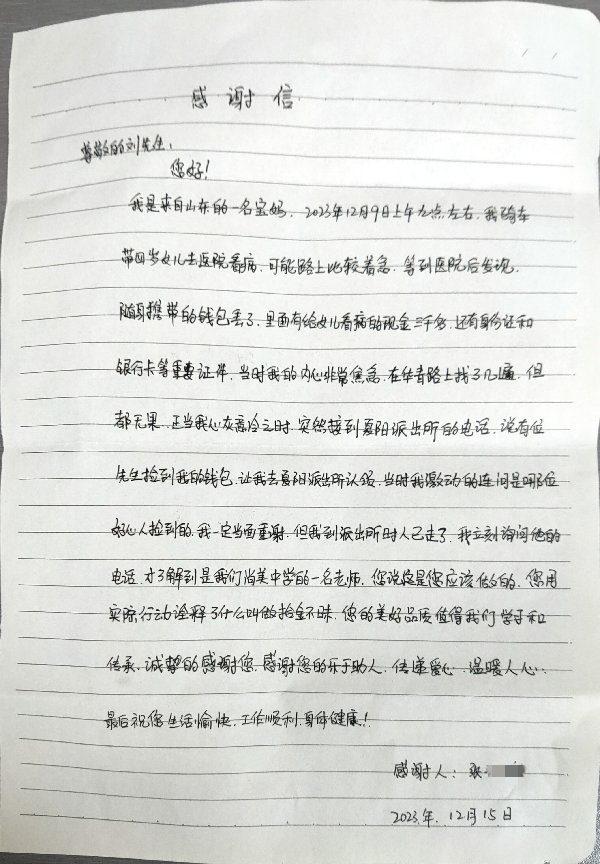 感谢信
尊敬的刘先生:
您好!
我是来自山东的一名宝妈,2023年12月9日上午九点左右,我骑车
带四岁女儿去医院看病,可能路上比较着急,等到医院后发现,
随身携带的钱包丢了,里面有给女儿看病的现金三千多,还有身份证和
银行卡等重要证件,当时我的内心非常焦急,在华青路上找了几遍,但
都无果,正当我心灰意冷之时,突然接到夏阳派出所的电话,说有位
先生捡到我的钱包,让我去夏阳派出所认领,当时我激动的连问是哪位
好心人捡到的,我一定当面重谢,但我到派出所时人已走了,我立刻询问他的
电话,才了解到是我们尚美中学的一名老师,您说这是您应该做的,您用
实际行动诠释了什么叫做拾金不昧,您的美好品质值得我们学习和
传承,诚挚的感谢您,感谢您的乐于助人,传递爱心,温暖人心,
最后祝您生活愉快,工作顺利,身体健康!
感谢人:张
2023年.12月15日